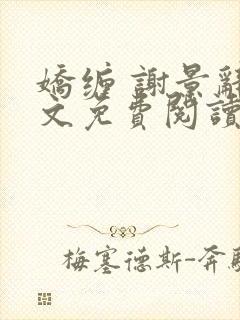 嬌纏 謝景辭
文免費閱讀
梅塞德斯-奔馳